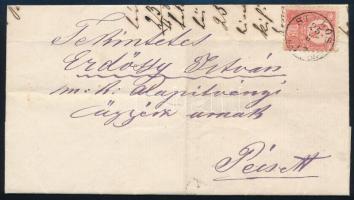 Tekintetes
Erdőssy István
m. k. alapitványi
ügyész urnak
Pécsett